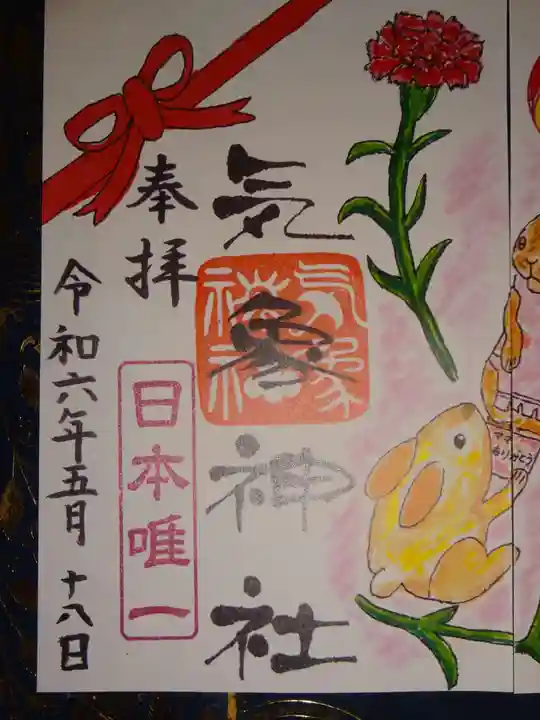 ママ
ありがとう
気象神社
気象神社
奉拝
日本唯一
令和六年五月十八日